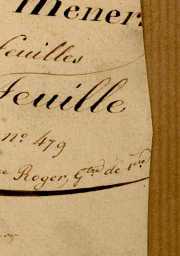 Mener
feuilles
feuille
n.º 479
Roger, G.tre de 1.re